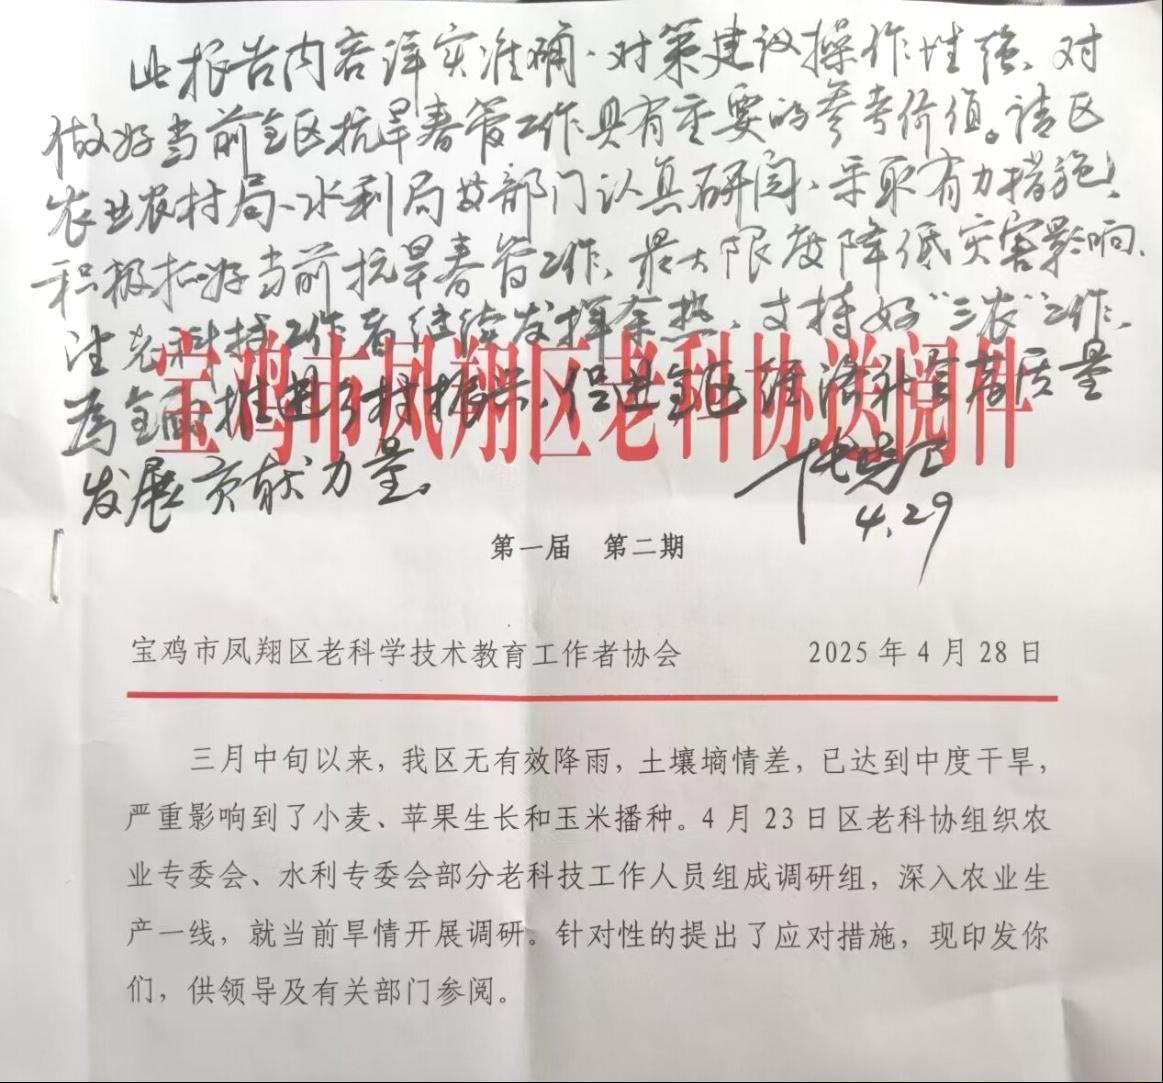 此报告内容详实准确、对策建议操作性强、对
做好当前全区抗旱春管工作具有重要的参考价值。请区
农业农村局、水利局及部门认真研阅、采取有力措施,
积极抓好当前抗旱春管工作、最大限度降低灾害影响.
请老科技工作者继续发挥余热、支持好“三农”工作、
为全面推进乡村振兴、促进全区经济社会高质量
发展贡献力量。
4.29
宝鸡市凤翔区老科协送阅件
第一届 第二期
宝鸡市凤翔区老科学技术教育工作者协会 2025年4月28日
三月中旬以来，我区无有效降雨，土壤墒情差，已达到中度干旱，
严重影响到了小麦、苹果生长和玉米播种。4月23日区老科协组织农
业专委会、水利专委会部分老科技工作人员组成调研组，深入农业生
产一线，就当前旱情开展调研。针对性的提出了应对措施，现印发你
们，供领导及有关部门参阅。